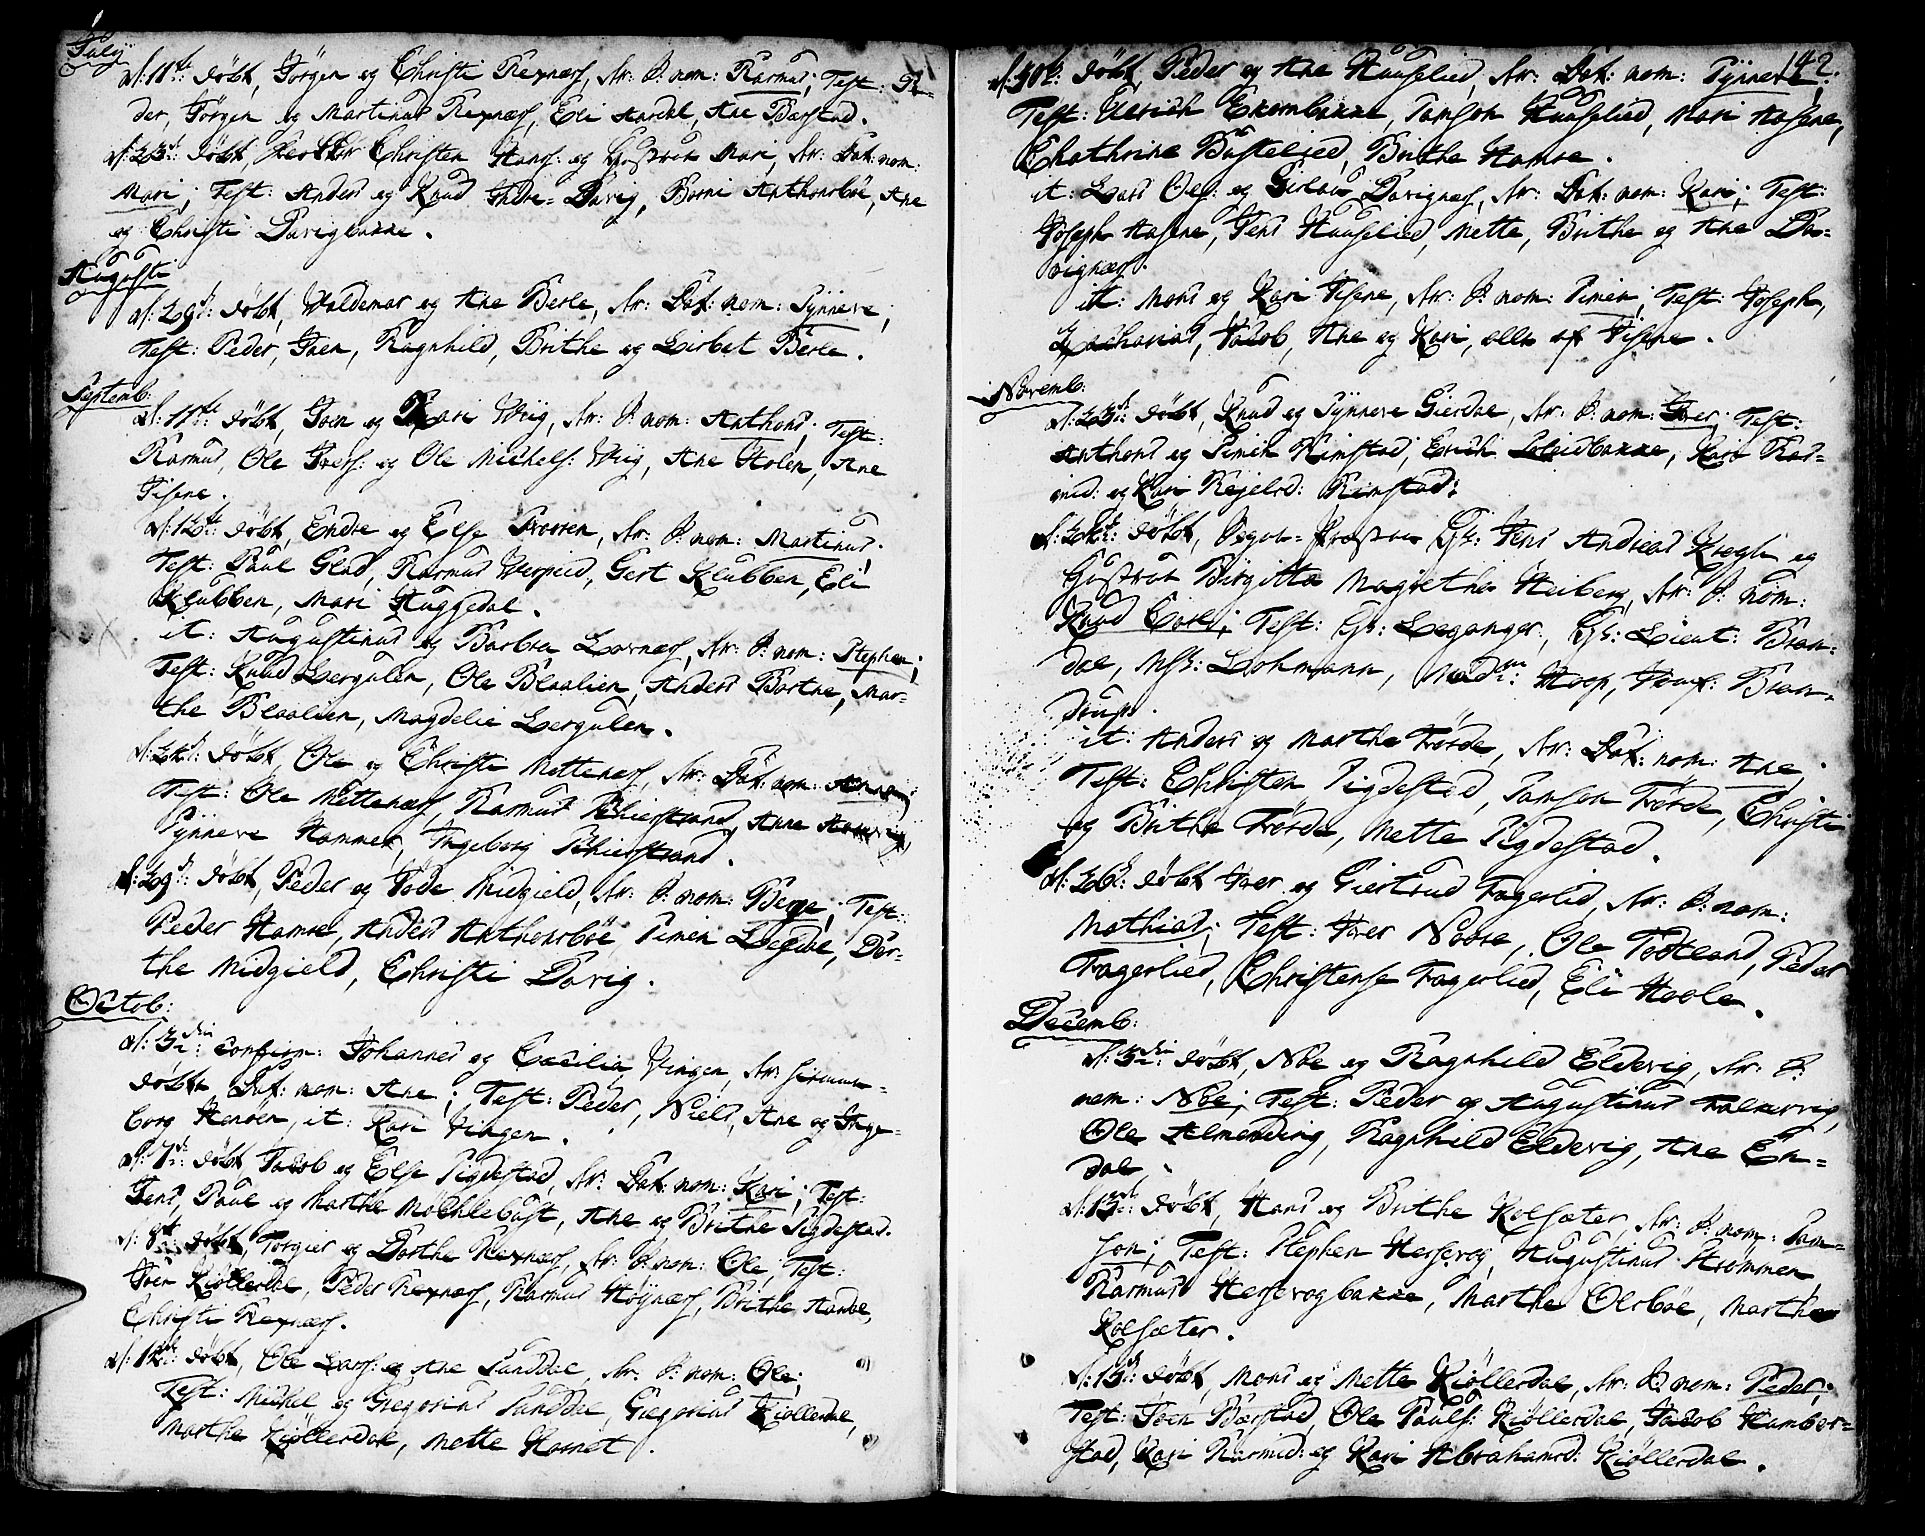 July
d: 11te: döbt, Jörgen og Christi Rexnæs, Ar: S: nom: Rasmus; Test: Pe-
der, Jörgen og Martinus Rexnæs, Eli Aardal, Ane Barstad.
d: 23d: döbt, Christen Hans: og Hustrue Mari, Ar: Dat: nom:
Mari; Test: Anders og Knud Indre-Davig, Borni Anthonsböe, Ane
og Christi Davigbakke.
Augusti
d: 29d: döbt, Valdemar og Ane Berle, Ar: Dat: nom: Synneve,
Test: Peder, Joen, Ragnhild, Brithe og Lisbet Berle.
Septemb:
d: 11te: döbt, Joen og Kari Wiig, Ar: S: nom: Anthoni; Test:
Rasmus, Ole Ivers: og Ole Michels: Wiig, Ane Holen, Ane
Visene.
d: 12te: döbt, Endre og Else, Ar: S: nom: Martinus;
Test: Paul Glad, Rasmus, Gert Klubben, Eli
Klubben, Mari Huggedal.
it: Augustinus og Barbra Lornæs, Ar: S: nom: Stephen;
Test: Knud Lergulen, Ole Blaalien, Anders Bortne, Mar-
the Blaalien, Magdeli Lergulen.
d: 24d: döbt, Ole og Christi Mettenæs, Ar: Dat: nom:
Test: Ole Mettenæs, Rasmus, Anne
Synneve Hammer, Ingeborg.
d: 29d: döbt, Peder og Jode Midgield, Ar: S: nom: Berge; Test:
Peder Hamre, Anders Anthonsböe, Simen Lægdæ, Dor-
the Midgield, Christi Davig.
Octob:
d: 3die: confirm: Johannes og Cæcilia Vingen, Ar:
döbte Dat: nom: Ane; Test: Peder, Niels, Ane og Inge-
borg Henöen, it: Kari Vingen.
d: 7d: döbt, Jacob og Else Sigdestad, Ar: Dat: nom: Kari; Test:
Jens, Paul og Marthe Möchlebust, Ane og Brithe Sigdestad.
d: 8d: döbt, Torgier og Dorthe Rexnæs, Ar: S: nom: Ole, Test:
Iver Kiöllerdal, Peder Rexnæs, Rasmus Höynæs, Brithe,
Christi Rexnæs.
d: 12te: döbt, Ole Lars: og Ane Sanddal, Ar: S: nom: Ole;
Test: Michel og Gregorius Sanddal, Gregorius Kiöllerdal,
Marthe Kiöllerdal, Mette Hornet.
142.
d: 30te: döbt, Peder og Ane Hauselied, Ar: Dat: nom: Synneve;
Test: Ulrich Ekornbakke, Samson Hauselied, Mari Aasene,
Chathrine Bustelied, Brithe Hamre.
it: Lars Ols: og Davignæs, Ar: Dat: nom: Kari; Test:
Joseph Aasene, Jens Hauselied, Mette, Brithe og Ane Da-
vignæs.
it: Mons og Kari Visene, Ar: S: nom: Simen; Test: Joseph,
Zacharias, Jacob, Ane og Kari, alle af Visene.
Novemb:
d: 23d: döbt, Knud og Synneve Gierdal, Ar: S: nom: Iver; Test:
Anthoni og Simen Rimstad, Erich, Kari Ras-
mid: og Kari Rimstad:
d: 24d: döbt, Hr: Jens Andreas Krogh og
Hustrue Birgitta Magrethe Heiberg, Ar: S: nom:
Knud; Test: Hr: Leganger, Hr: Lieut: Bran-
dal, Mss: Lohmann, Mad: Hoep, Jomf: Bran-
drup.
it: Anders og Marthe Förde, Ar: Dat: nom: Ane;
Test: Christen Sigdestad, Samson Förde, Christi
og Brithe Förde, Mette Sigdestad.
d: 26d: döbt Iver og Giertrud Fagerlid, Ar: S: nom:
Mathias; Test: Iver Noore, Ole Totland, Peder
Fagerlied, Christense Fagerlied, Eli Hoole.
Decemb:
d: 3die: döbt, Noe og Ragnhild Eldevig, Ar: S:
nom: Noe; Test: Peder og Augustinus Falkevig,
Ole Almending, Ragnhild Eldevig, Ane En-
dal.
d: 13d: döbt, Hans og Brithe Kolsæter, Ar: S: nom: Sam-
son; Test: Stephen Hessevog, Augustinus Strömmen,
Rasmus Hessevogbakke, Marthe Olsböe, Marthe
Kolsæter.
d: 15d: döbt, Mons og Mette Kiöllerdal, Ar: S: nom: Peder;
Test: Joen Barstad, Ole Pauls: Kiöllerdal, Jacob Humber-
stad, Kari Rasmid: og Kari Abrahamsd: Kiöllerdal.